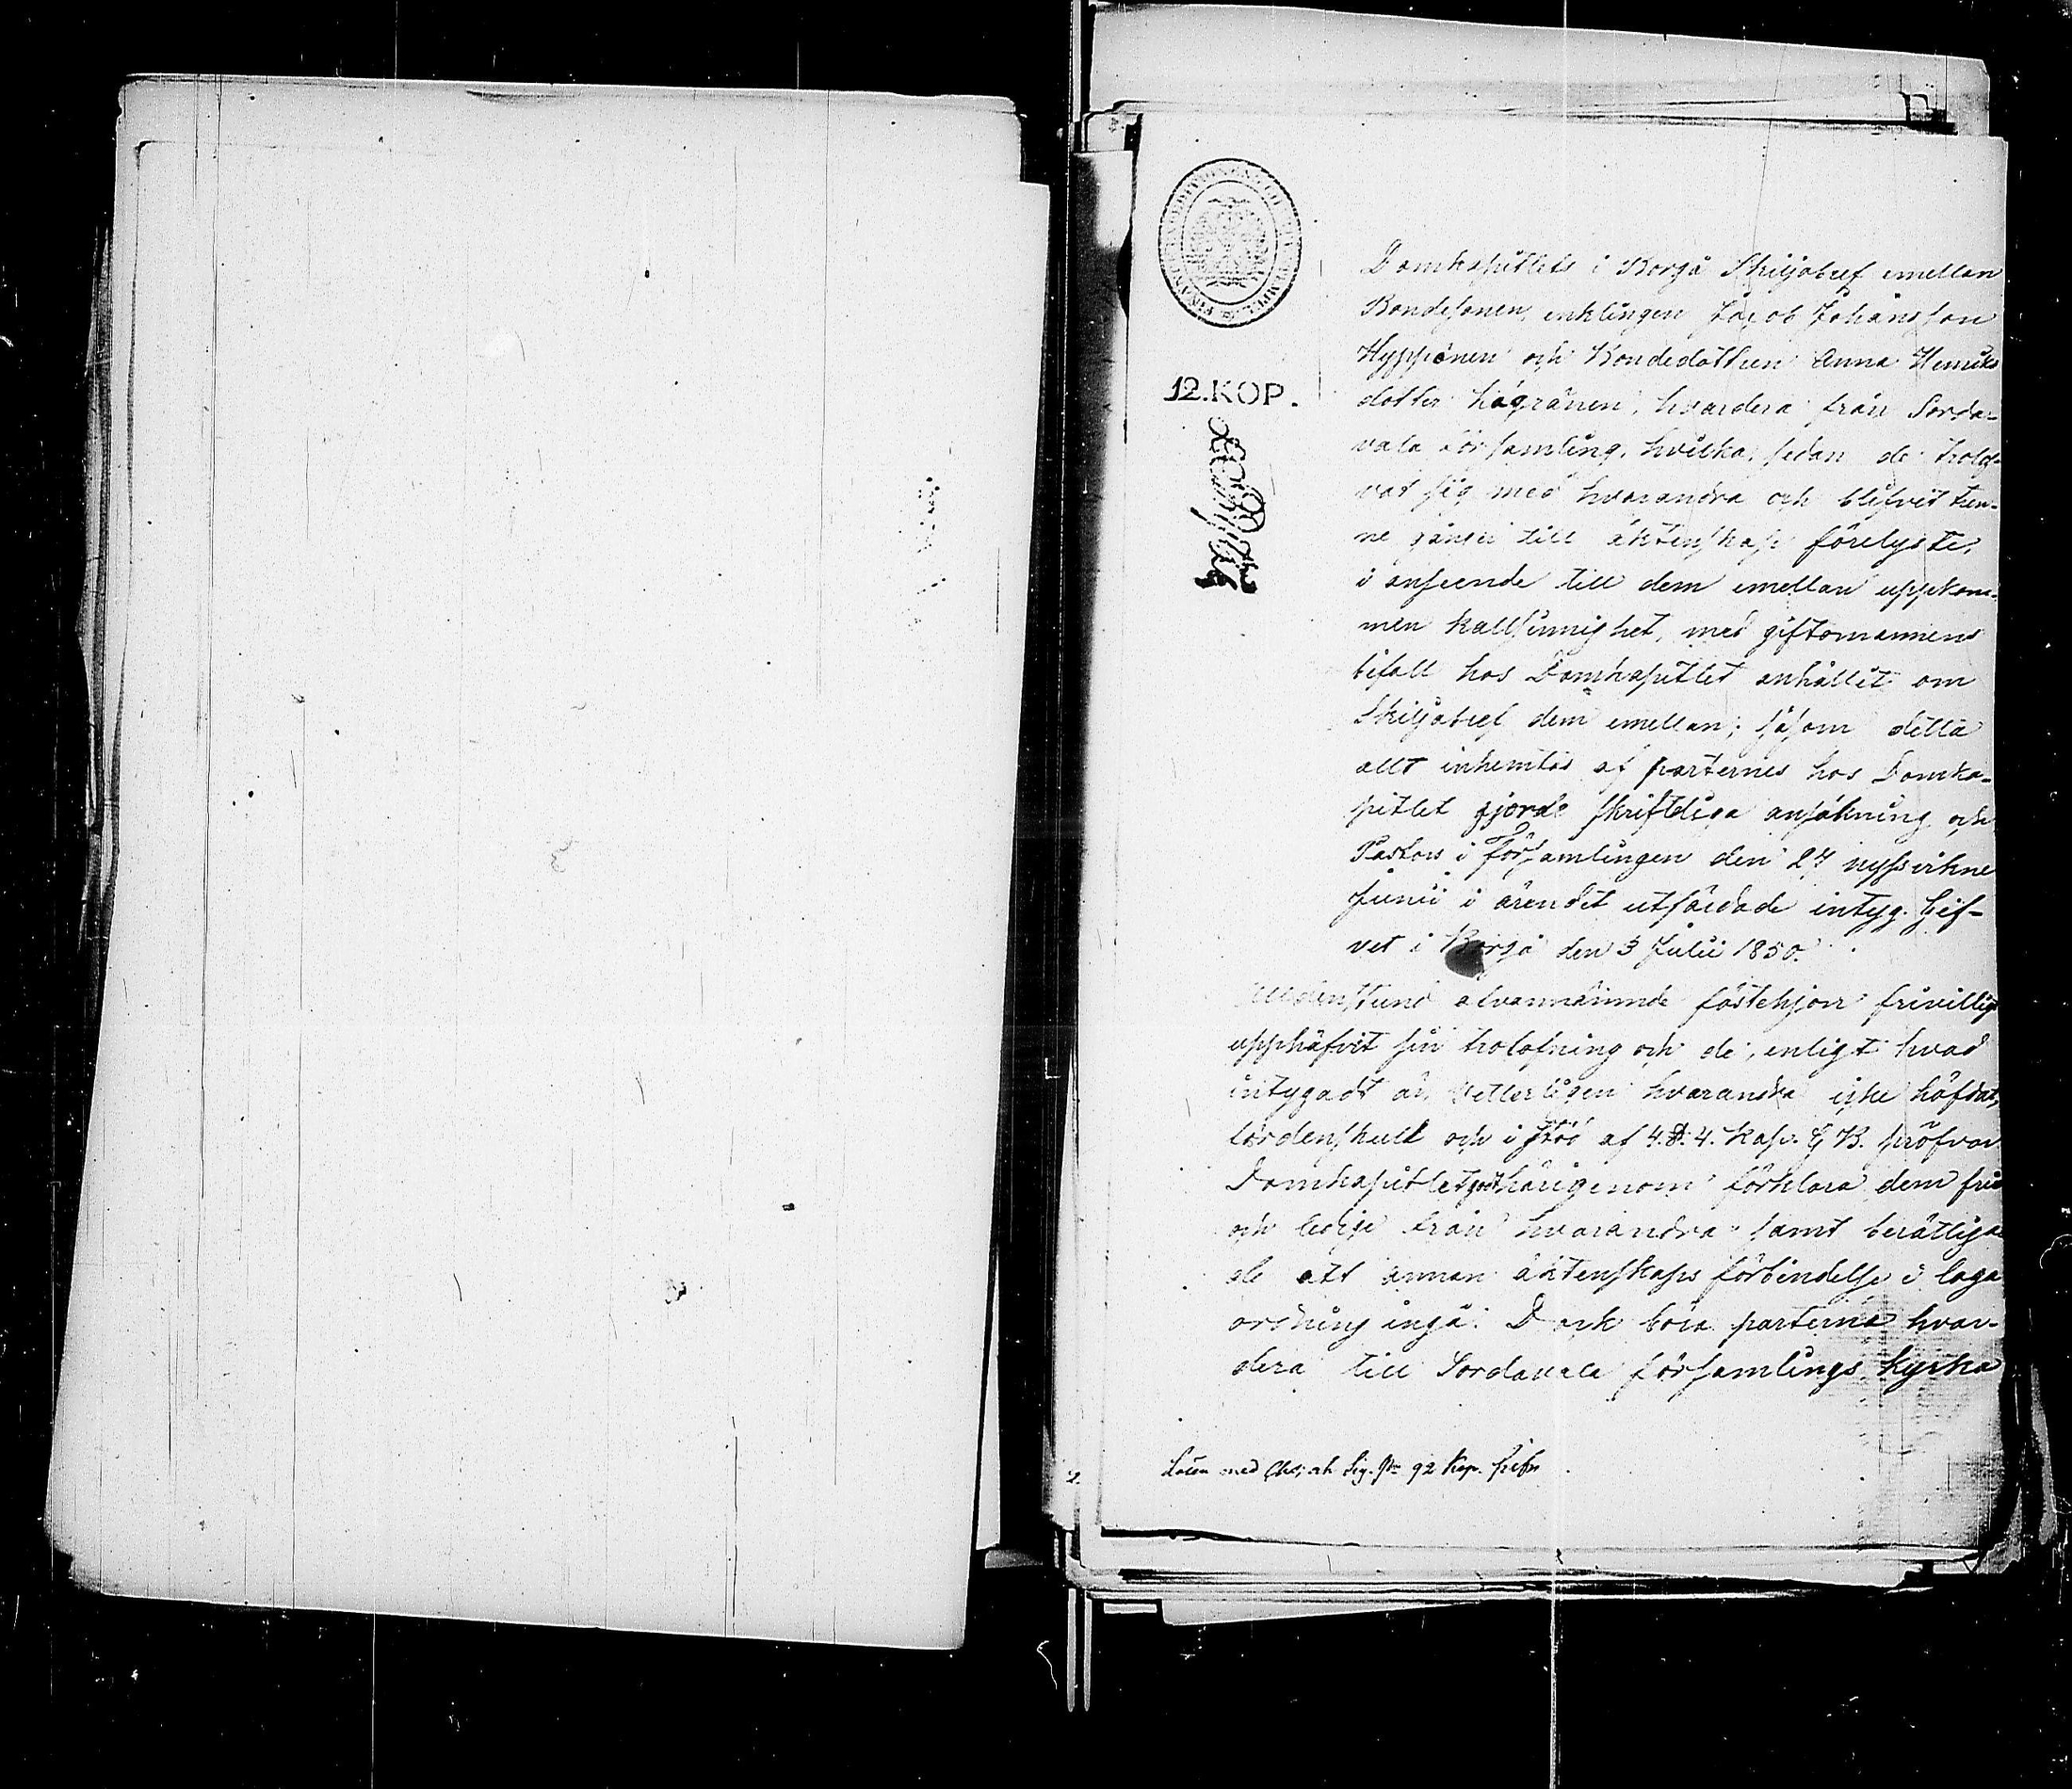 12.KOP.
Domkapitlets i Borgå Skiljobref emellan
Bondesonen, enklingen Jacob Johansson
Hyppönen och Bondedottren Anna Henriks
dotter hvardera från Sorda-
vala församling, hvilka, sedan de trolof-
vat sig med hvarandra och blifvit tren-
ne gånger till äktenskap förelyste,
i anseende till dem emellan uppkom-
men kallsinnighet, med giftomannens
bifall hos Domkapitlet anhållit om
Skiljobref dem emellan; såsom detta
allt inhemtas af parternes hos Domka-
pitlet gjorde skriftliga ansökning och
Pastors i Församlingen den 27 nyssvikne
Junii i ärendet utfärdade intyg. Gif-
vet i Borgå den 3 Julii 1850.
Alldenstund ofvannämnde fästehjon frivilligt
upphäfvit sin trolofning och de, enligt hvad
intygadt är, hvarandra icke häfdat,
ty fördenskull och i stöd af 4.§. 4. Kap. G.B. pröfvar
Domkapitlet godt härigenom förklara dem fria
och ledige från hvarandra samt berättiga
de att annan äktenskaps förbindelse i laga
ordning ingå. Dock böra parterna hvar-
dera till Sordavala församlings kyrka
Lösen med 92 Kop. Silfr